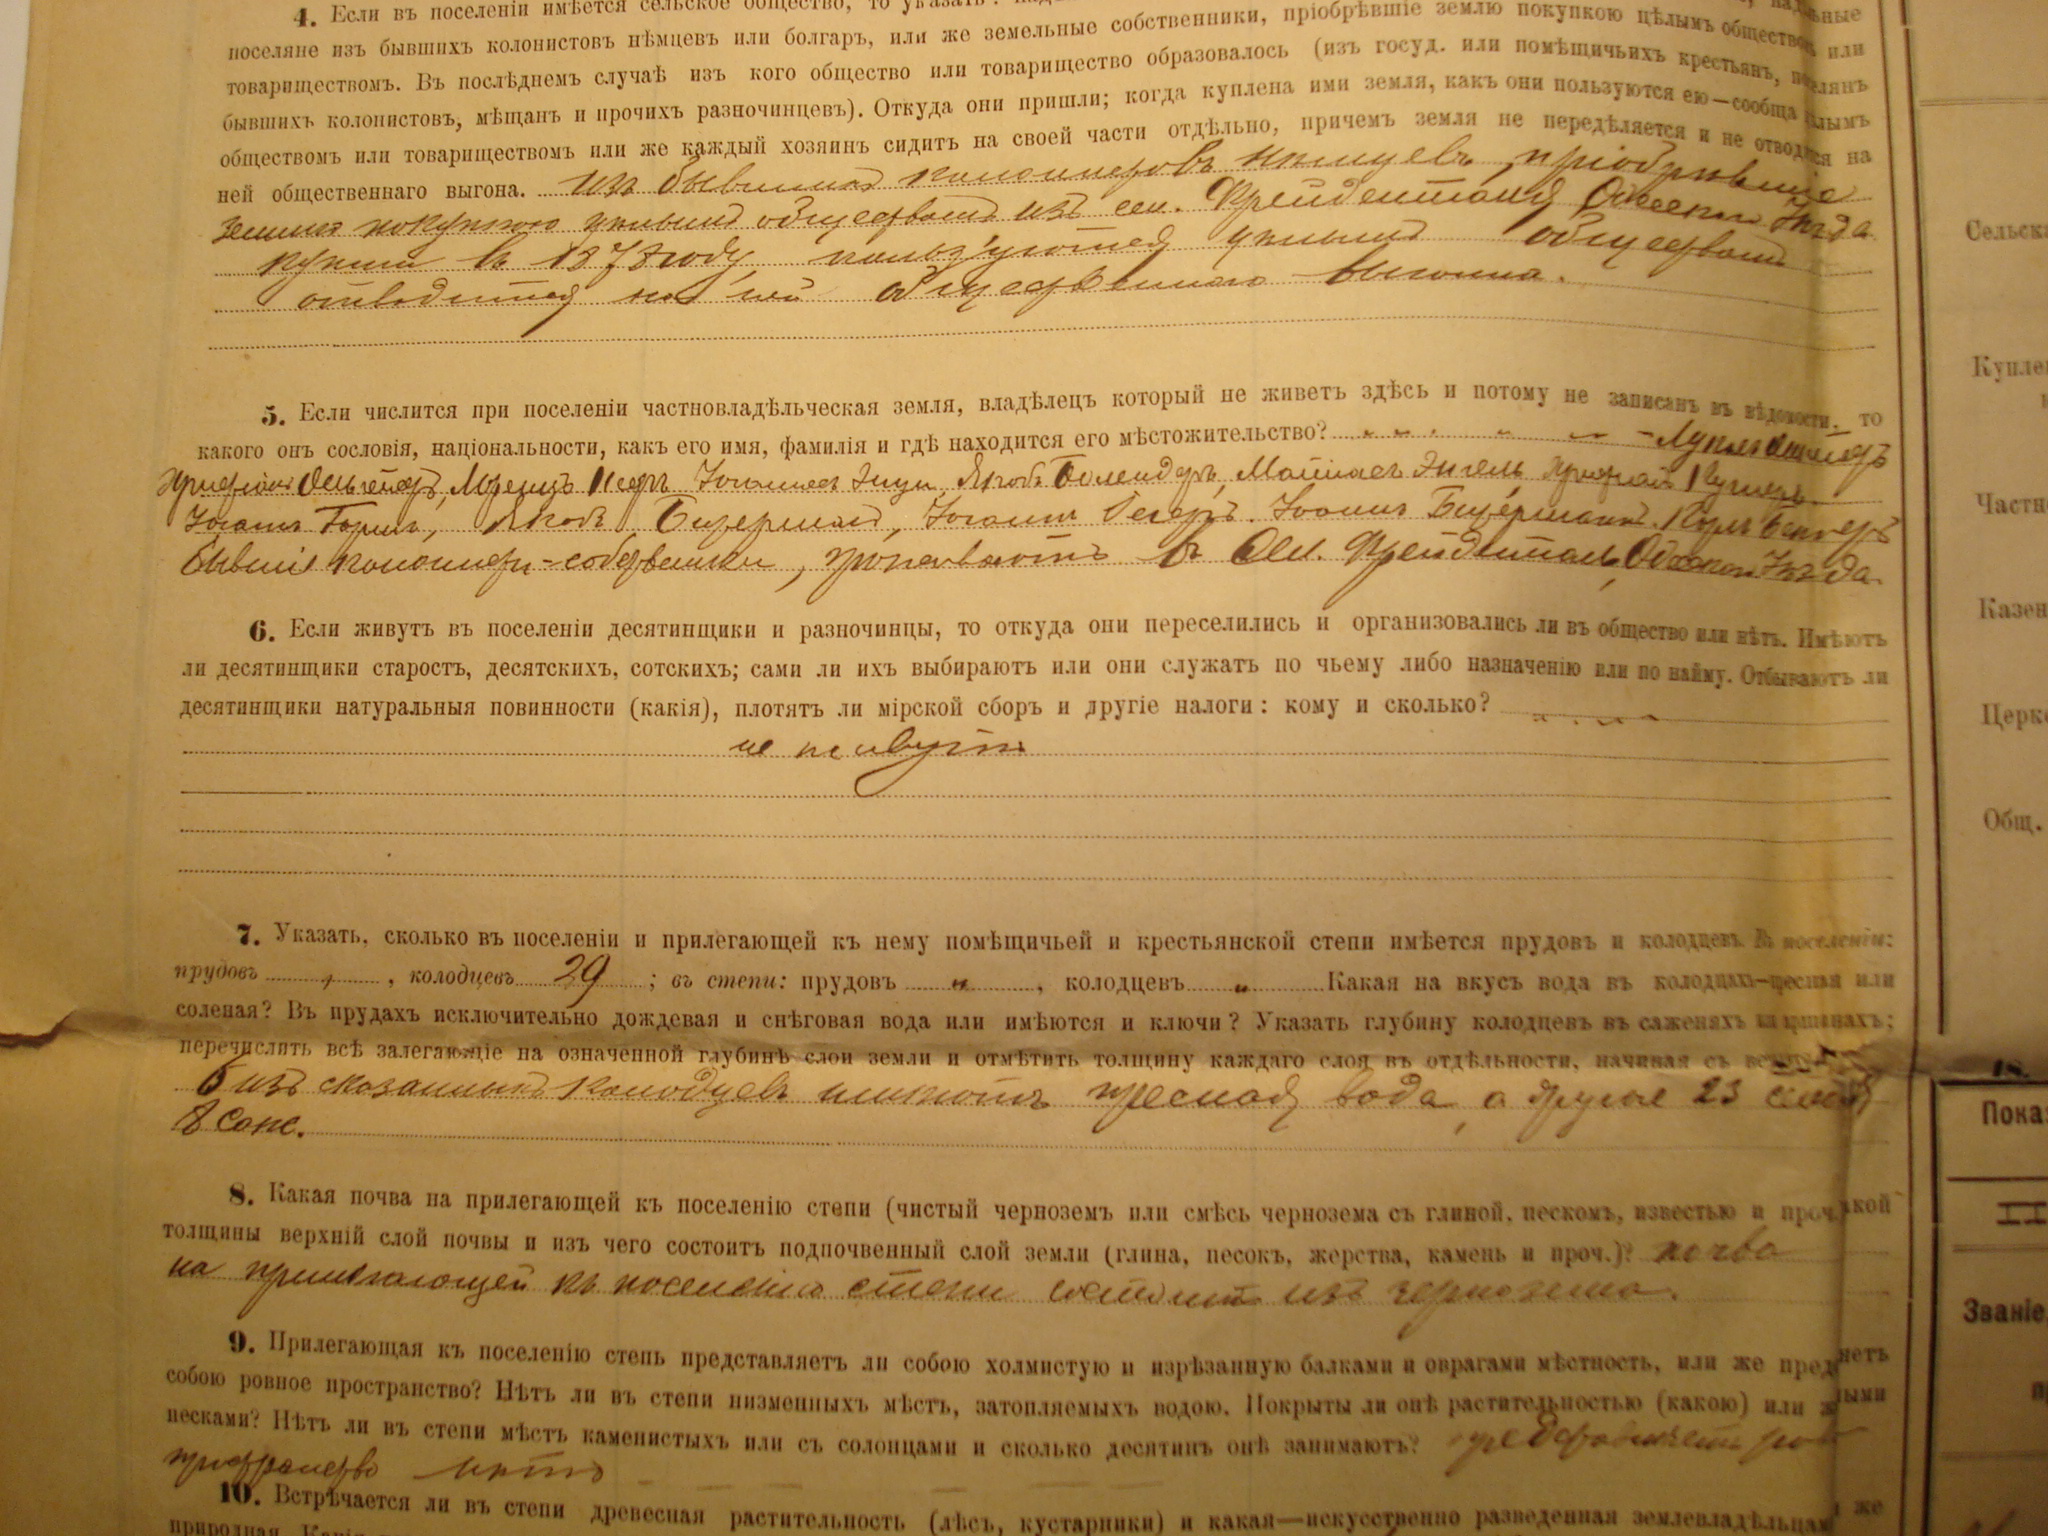 4. Если въ поселеніи имѣется сельское общество, то указать:
поселяне изъ бывшихъ колонистовъ нѣмцевъ или болгаръ, или же земельные собственники, пріобрѣвшіе землю покупкою цѣлымъ обществомъ или
товариществомъ. Въ послѣднемъ случаѣ изъ кого общество или товарищество образовалось (изъ госуд. или помѣщичьихъ крестьянъ, поселянъ
бывшихъ колонистовъ, мѣщанъ и прочихъ разночинцевъ). Откуда они пришли; когда куплена ими земля, какъ они пользуются ею—сообща цѣлымъ
обществомъ или товариществомъ или же каждый хозяинъ сидитъ на своей части отдѣльно, причемъ земля не передѣляется и не отводится на
ней общественнаго выгона. изъ бывшихъ колонистровъ нѣмцевъ, пріобрѣвшіе
земли покупкою цѣлымъ обществомъ изъ сел. Фрейденталя Одесскаго Уѣзда
купили въ 1878 году пользуются цѣлымъ обществомъ
отводится на ней общественнаго выгона.
5. Если числится при поселеніи частновладѣльческая земля, владѣлецъ который не живетъ здѣсь и потому не записанъ въ вѣдомости, то
какого онъ сословія, національности, какъ его имя, фамилія и гдѣ находится его мѣстожительство?
Якобъ Болендеръ, Матіасъ Энгель,
Якобъ Бидерманъ, Іоганъ Бидерманъ. Карлъ
бывшіе колонисты-собственники, проживаютъ въ Сел. Фрейденталь, Одесскаго Уѣзда
6. Если живутъ въ поселеніи десятинщики и разночинцы, то откуда они переселились и организовались ли въ общество или нѣтъ. Имѣютъ
ли десятинщики старостъ, десятскихъ, сотскихъ; сами ли ихъ выбираютъ или они служатъ по чьему либо назначенію или по найму. Отбываютъ ли
десятинщики натуральныя повинности (какія), плотятъ ли мірской сборъ и другіе налоги: кому и сколько?
не живутъ
7. Указать, сколько въ поселеніи и прилегающей къ нему помѣщичьей и крестьянской степи имѣется прудовъ и колодцевъ. Въ поселеніи:
прудовъ „ , колодцевъ 29 ; въ степи: прудовъ „ , колодцевъ „ Какая на вкусъ вода въ колодцахъ—прѣсная или
соленая? Въ прудахъ исключительно дождевая и снѣговая вода или имѣются и ключи? Указать глубину колодцевъ въ саженяхъ или аршинахъ;
перечислять всѣ залегающіе на означенной глубинѣ слои земли и отмѣтить толщину каждаго слоя въ отдѣльности, начиная съ
6 изъ сказанныхъ колодцевъ имѣютъ пресная вода, а другіе 23
8 саж.
8. Какая почва на прилегающей къ поселенію степи (чистый черноземъ или смѣсь чернозема съ глиной, пескомъ, известью и проч.
толщины верхній слой почвы и изъ чего состоитъ подпочвенный слой земли (глина, песокъ, жерства, камень и проч.)? почва
на прилегающей къ поселенію степи состоитъ изъ чернозема.
9. Прилегающая къ поселенію степь представляетъ ли собою холмистую и изрѣзанную балками и оврагами мѣстность, или же
собою ровное пространство? Нѣтъ ли въ степи низменныхъ мѣстъ, затопляемыхъ водою. Покрыты ли онѣ растительностью (какою) или
песками? Нѣтъ ли въ степи мѣстъ каменистыхъ или съ солонцами и сколько десятинъ онѣ занимаютъ? представляетъ
пространство нѣтъ
10. Встрѣчается ли въ степи древесная растительность (лѣсъ, кустарники) и какая—искусственно разведенная
Частн
Казен
Церк
Общ.
Пока
Званіе,